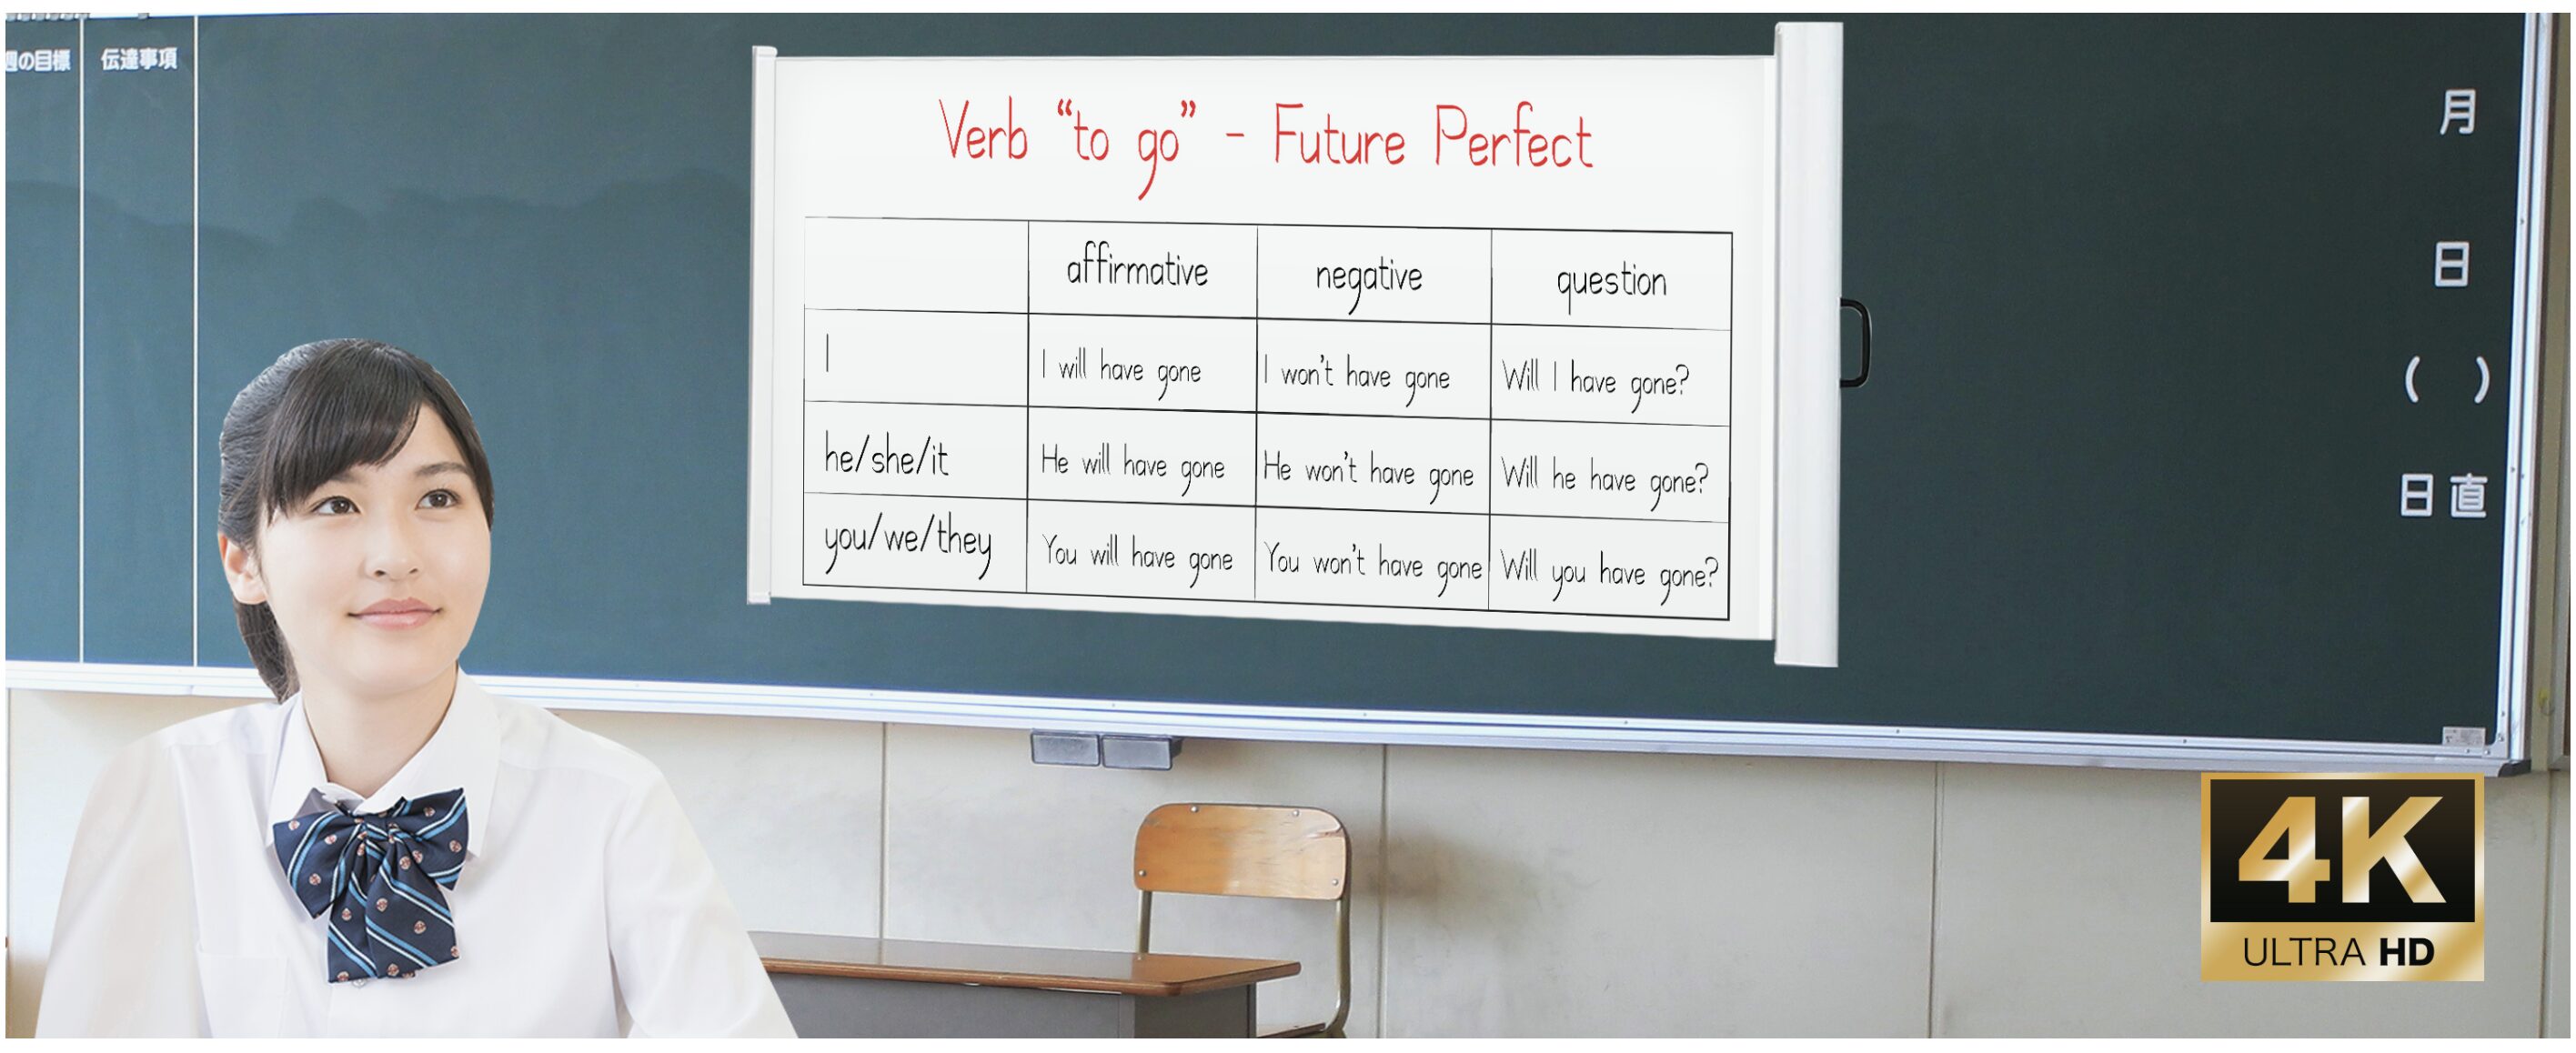 週の目標
伝達事項
Verb “to go” - Future Perfect
affirmative negative question
I I will have gone I won't have gone Will I have gone?
he/she/it He will have gone He won't have gone Will he have gone?
you/we/they You will have gone You won't have gone Will you have gone?
月
日
( )
日直
4K
ULTRA HD